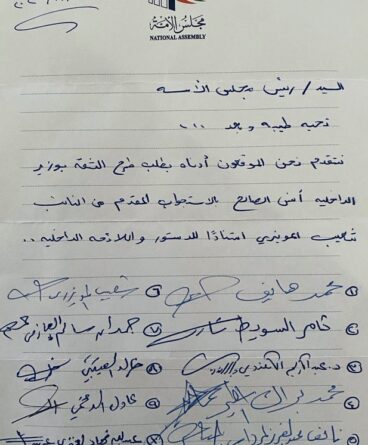 مجلس الأمة
NATIONAL ASSEMBLY
السيد / رئيس مجلس الأمة
تحية طيبة وبعد ...
نتقدم نحن الموقعون أدناه بطلب طرح الثقة بوزير
الداخلية أنس الصالح بالاستجواب المقدم من النائب
شعيب المويزري استنادًا للدستور واللائحة الداخلية ..
١ محمد هايف ٦ شعيب المويزري
٢ ثامر السويط ٧ حمدان سالم العازمي
٣ د. عبدالكريم الكندري ٨ خالد العتيبي
٤ محمد براك المطير ٩ عادل الدمخي